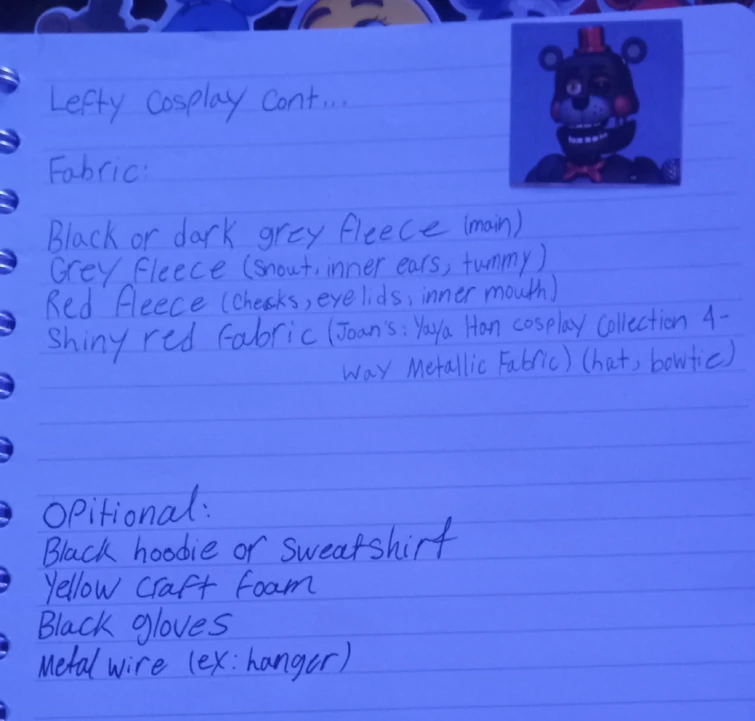 Lefty Cosplay Cont...
Fabric:
Black or dark grey fleece (main)
Grey fleece (snout, inner ears, tummy)
Red fleece (cheeks, eyelids, inner mouth)
Shiny red fabric (Joan's: Yaya Han cosplay Collection 4-
Way Metallic Fabric) (hat, bowtie)
OPitional:
Black hoodie or sweatshirt
Yellow craft foam
Black gloves
Metal wire (ex: hanger)